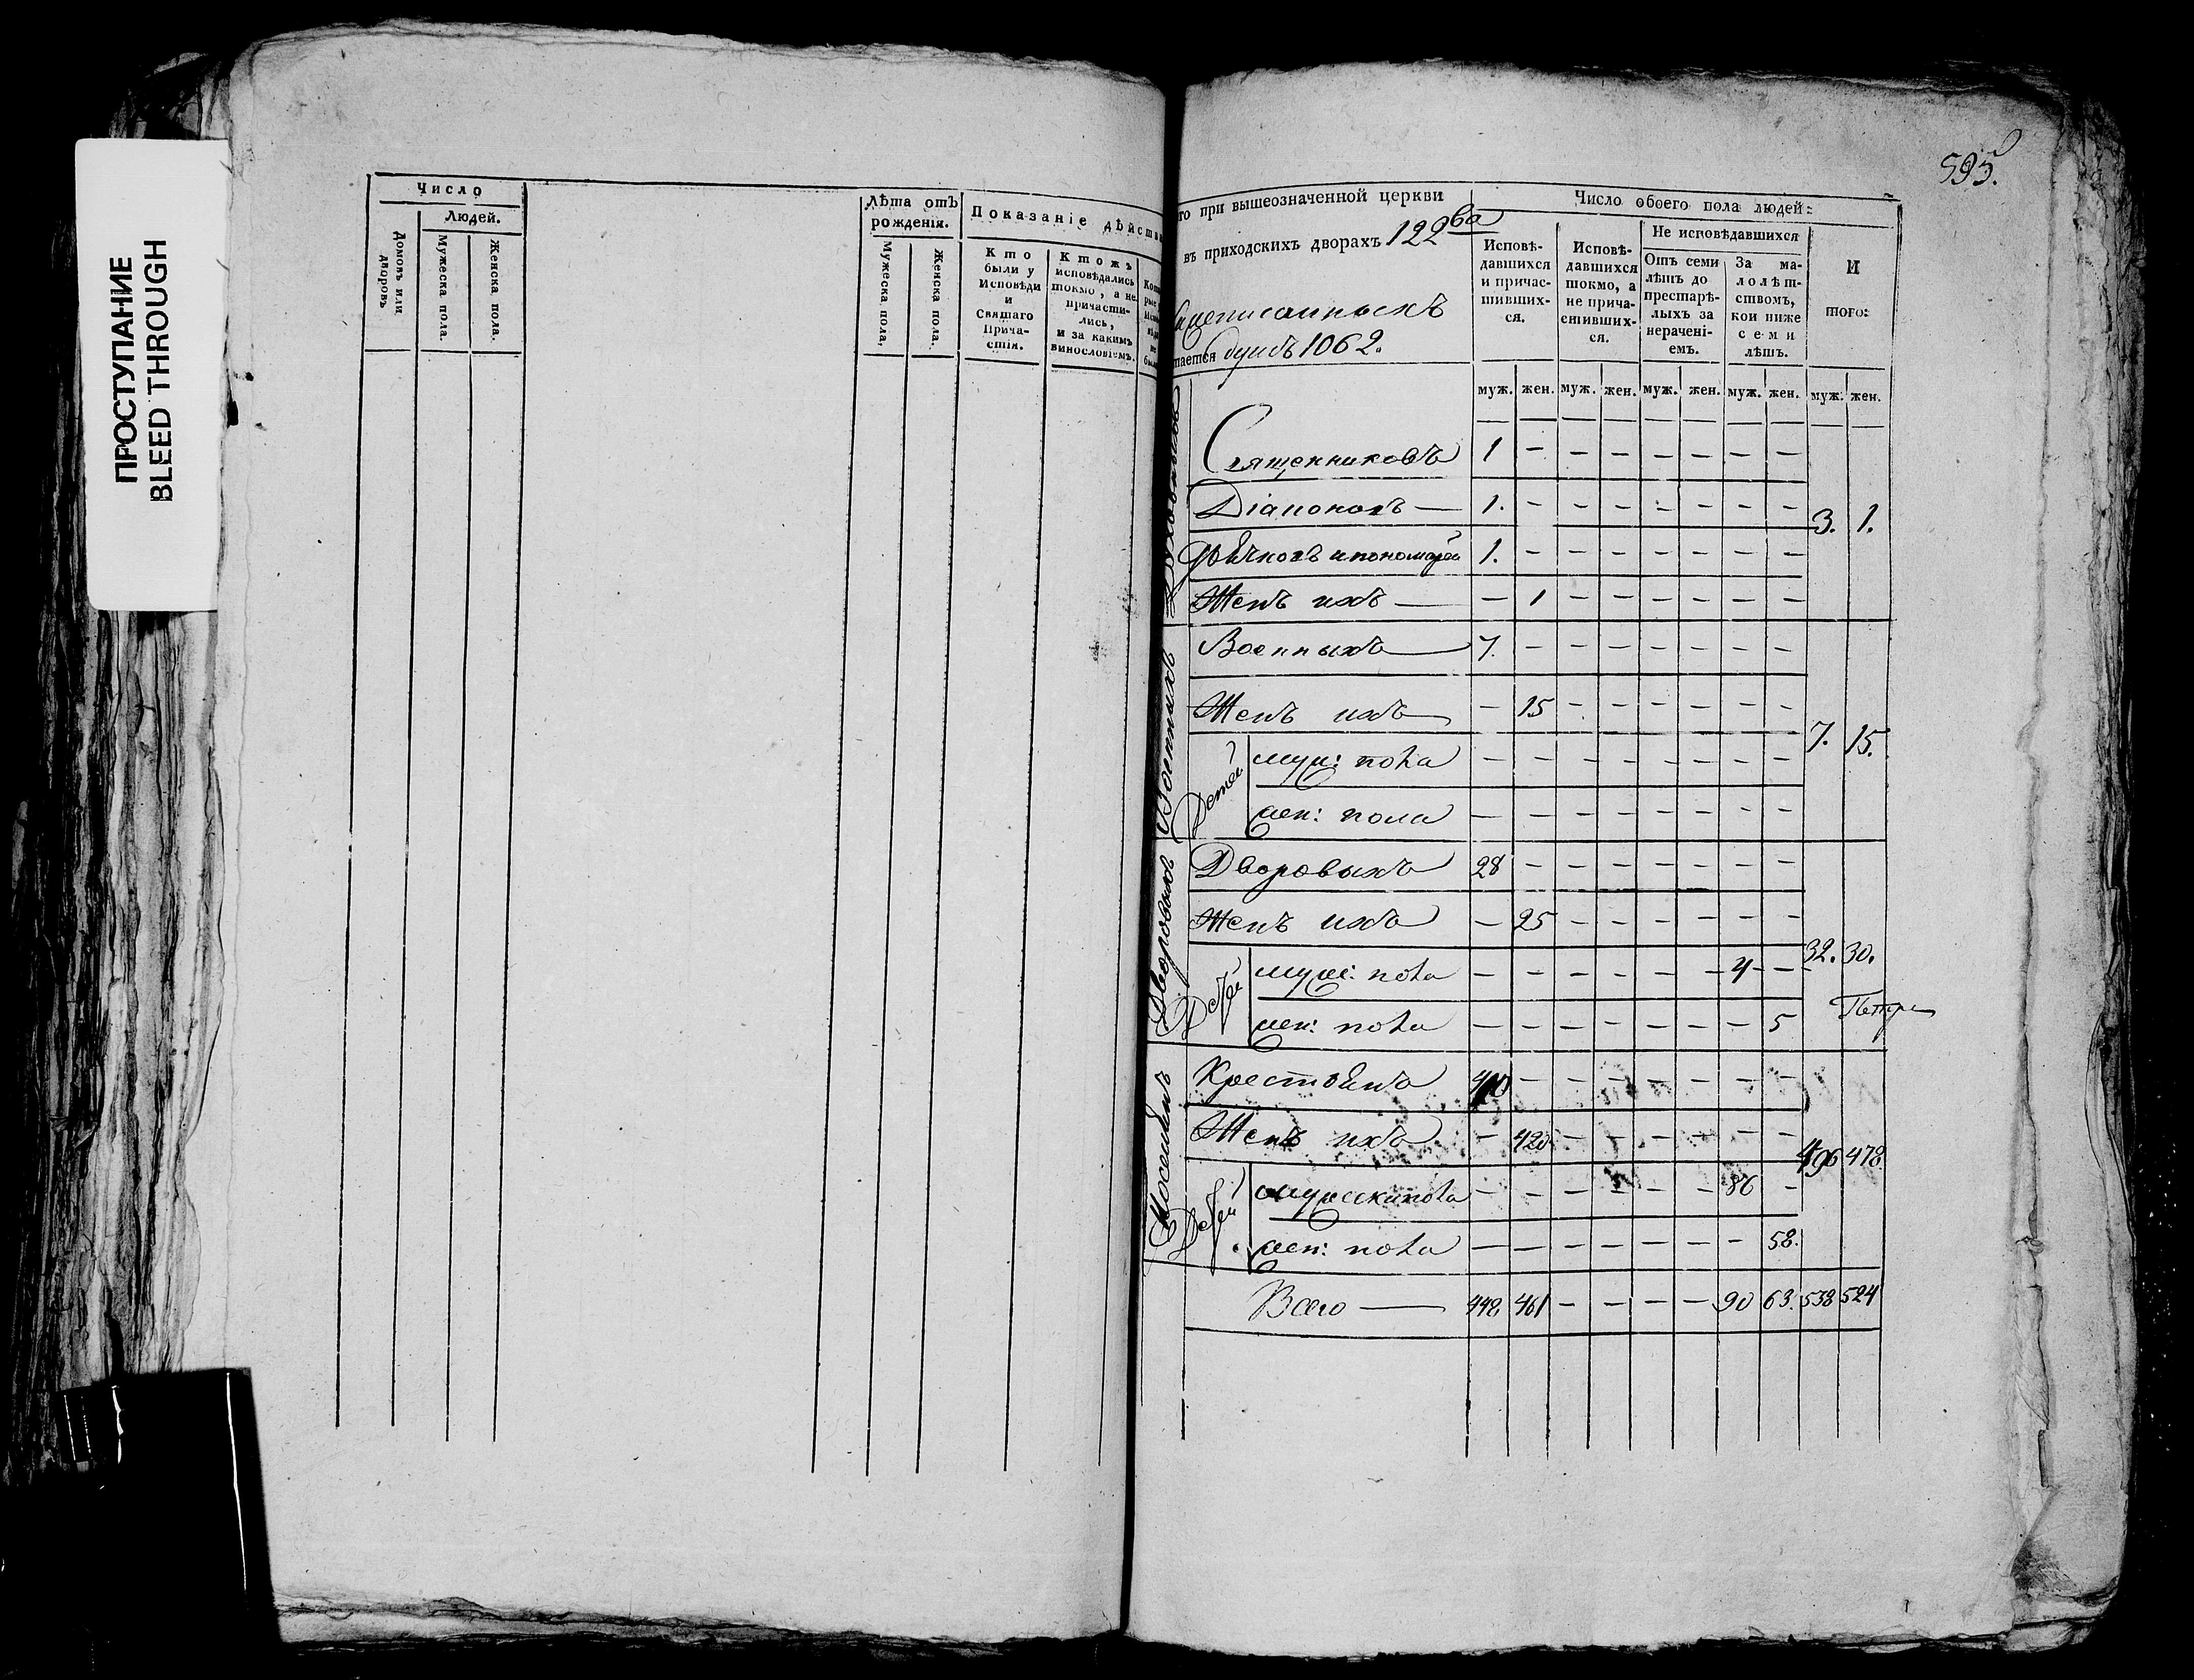 ПРОСТУПАНИЕ
BLEED THROUGH
Число
Людей.
Домовъ или дворовъ.
Мужеска пола.
Женска пола.
Лѣта отъ
рожденія.
Мужеска пола,
Женска пола.
Показаніе дѣйств
Кто
были у
Исповѣди
и
Святаго
Прича-
стія.
Ктожъ
исповѣдались
токмо, а не
причасти-
лись,
и за какимъ
винословіемъ.
595.
го при вышеозначенной церкви
въ приходскихъ дворахъ 122ва
тается душъ 1062.
Число обоего пола людей:
Исповѣ-
давшихся
и причас-
тивших-
ся.
Исповѣ-
давшихся
токмо, а
не прича-
стивших-
ся.
Не исповѣдавшихся
Отъ семи
лѣтъ до
престарѣ-
лыхъ за
нерачені-
емъ.
За ма-
лолѣт-
ствомъ,
кои ниже
семи
лѣтъ.
И
того:
муж. жен. муж. жен. муж. жен. муж. жен. муж. жен.
Духовныхъ
Священниковъ 1 — — — — — — —
Діаконовъ — 1. — — — — — — — 3. 1.
Дьячковъ и пономарей 1. — — — — — — —
Женъ ихъ — — 1 — — — — — —
Военныхъ
Военныхъ — 7. — — — — — — —
Женъ ихъ — 15 — — — — — — 7. 15.
Детей
муж: пола — — — — — — — —
жен: пола — — — — — — — —
Дворовыхъ
Дворовыхъ 28 — — — — — — —
Женъ ихъ — 25 — — — — — — 32. 30.
Детей
муж: пола — — — — — — 4 —
жен: пола — — — — — — — 5
Петръ
Поселянъ
Крестьянъ 410 — — — — — — —
Женъ ихъ — 420 — — — — — — 496 478
Детей
мужеска пола — — — — — — 86 —
жен: пола — — — — — — — 58.
Всего — 448 461 — — — — 90 63. 538 524